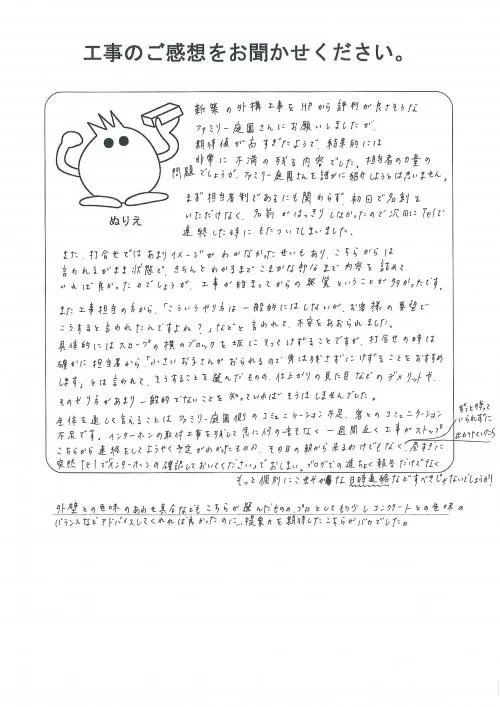 工事のご感想をお聞かせください。
新築の外構工事をHPから評判が良さそうな
ファミリー庭園さんにお願いしましたが、
期待値が高すぎたようで、結果的には
非常に不満の残る内容でした。担当者の力量の
問題でしょうが、ファミリー庭園さんを誰かに紹介しようとは思いません。
ぬりえ
まず担当者制であるにも関わらず、初回で名刺を
いただけなく、名前がはっきりしなかったので次回にTelで
連絡した時にもたついてしまいました。
また、打合せではあまりイメージがわかなかったせいもあり、こちらからは
言われるがまま状態で、きちんとわかるまでこまかな部分まで内容を詰めて
いれば良かったのでしょうが、工事が始まってからの発覚ということが多かったです。
また工事担当の方から、「こういうやり方は一般的にはしないが、お客様の要望で
こうすると言われたんですよね?」などと言われて、不安をあおられました。
具体的にはスロープの横のブロックを坂にそってけずることですが、打合せの時は
確かに担当者から「小さいお子さんがおられるので角は残さずにけずることをおすすめ
します」とは言われて、そうすることを選んだものの、仕上がりの見た目などのデメリットや、
そのやり方があまり一般的でないことを知っていればそうはしませんでした。
全体を通して言えることはファミリー庭園側のコミュニケーション不足、客とのコミュニケーション
不足です。インターホンの取付工事を残して急に何の音もなく一週間近く工事がストップ。
こちらから連絡をしてようやく予定がわかったものの、その日の朝から来るわけでもなく、昼すぎに
ずっと待って
いられずに
出かけていたら
突然Telで「インターホンの確認しておいてください。」でおしまい。ブログでの進ちょく報告だけでなく
もっと個別にこまやかな日時連絡などすべきじゃないでしょうか!
外壁との色味のあわせ具合なども、こちらが選んだものの、プロとしてもう少しコンクリートとの色味の
バランスなどアドバイスしてくれれば良かったのに…提案力を期待したこちらがバカでした。